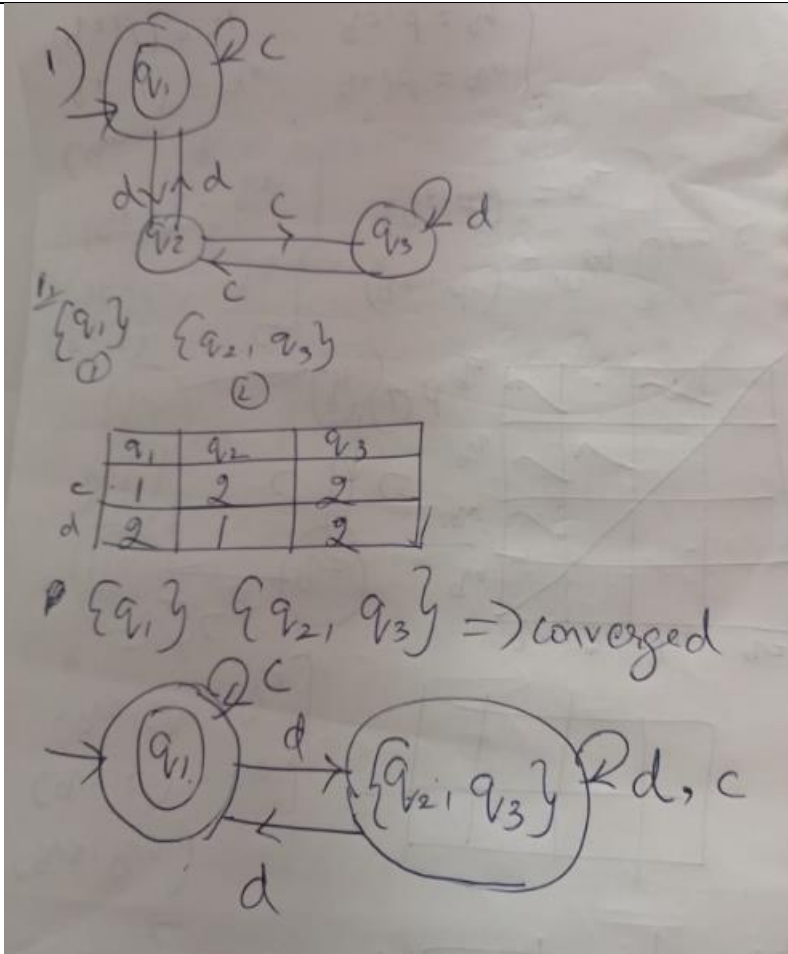 1)
q1 c
d d
q2 c q3 d
c
{q1} {q2, q3}
① ②
q1 q2 q3
c 1 2 2
d 2 1 2
{q1} {q2, q3} => converged
c
q1 d {q2, q3} d, c
d